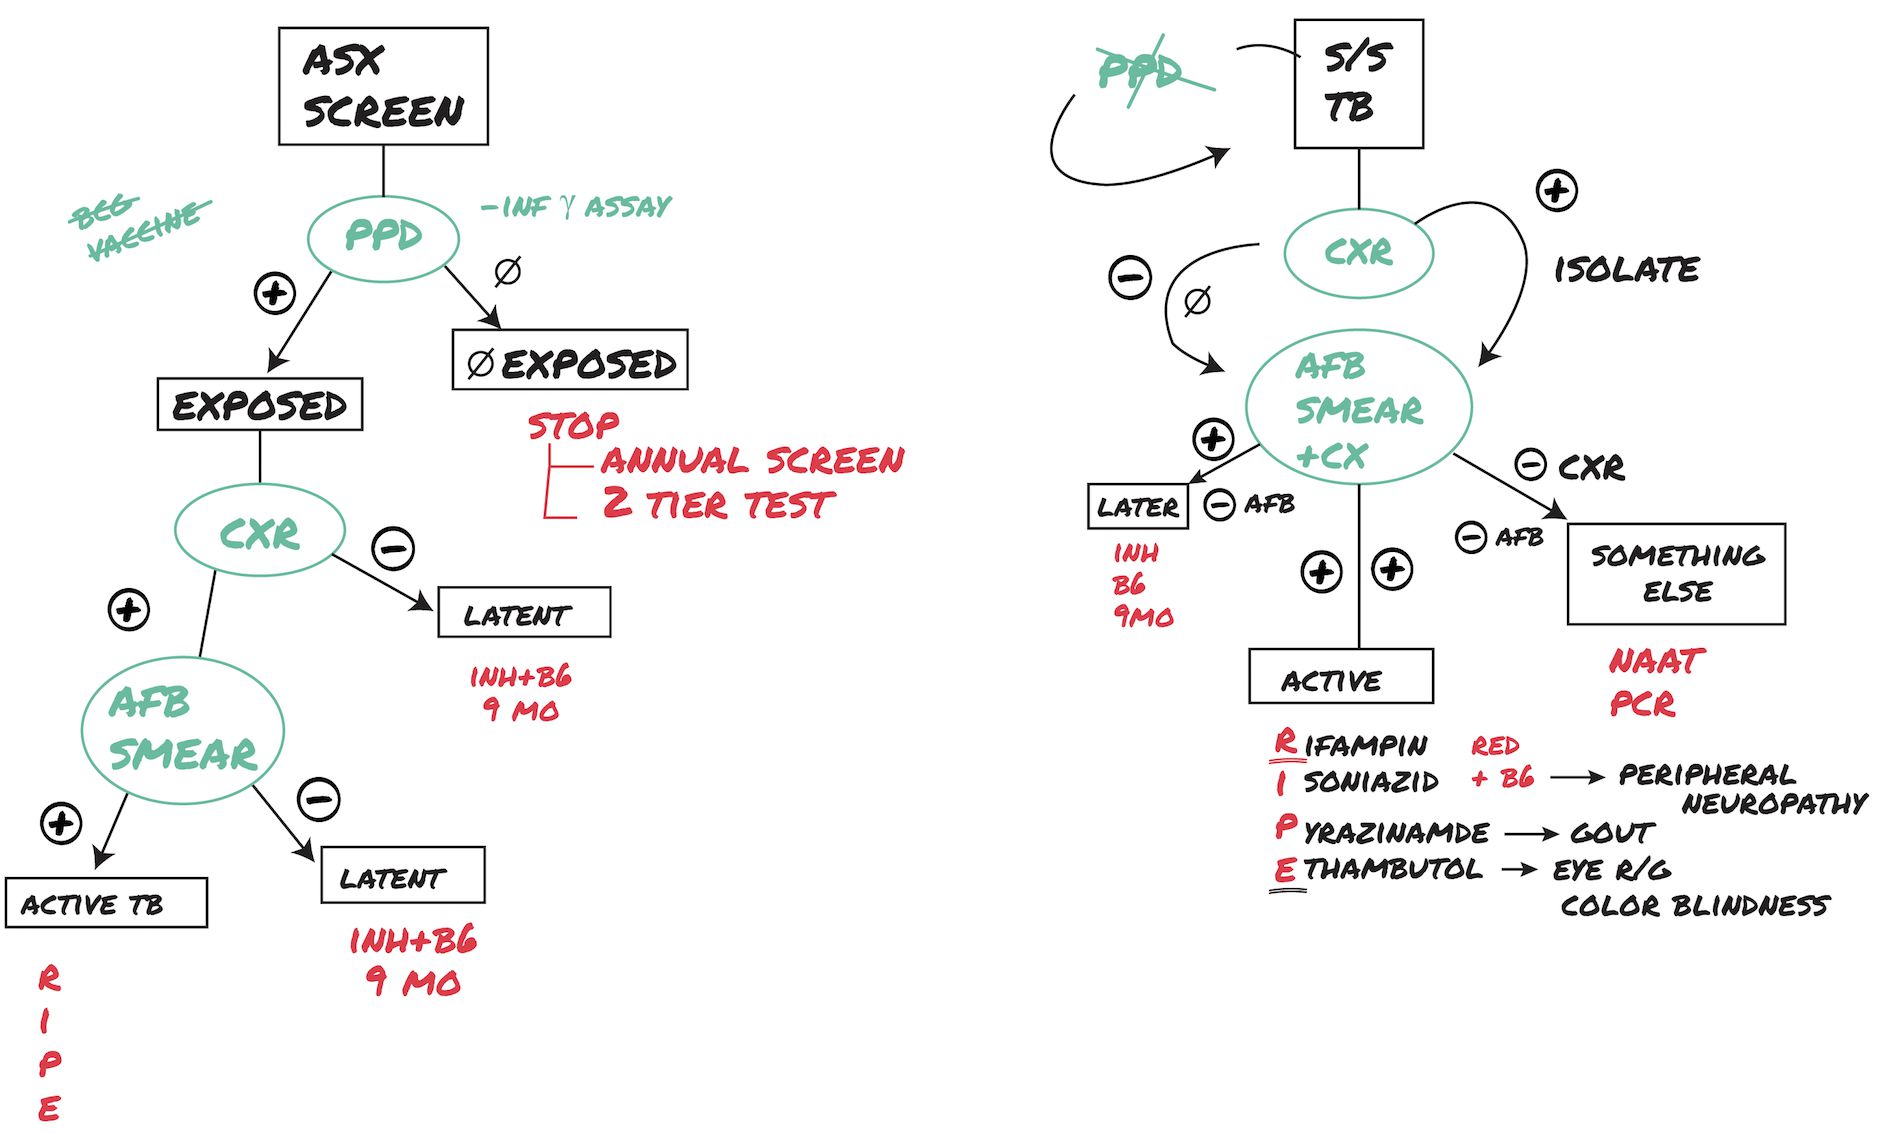 ASX
SCREEN
BCG
VACCINE
PPD
-INF γ ASSAY
+
Ø
Ø EXPOSED
EXPOSED
STOP
ANNUAL SCREEN
2 TIER TEST
CXR
-
+
LATENT
INH+B6
9 MO
AFB
SMEAR
-
+
ACTIVE TB
LATENT
INH+B6
9 MO
R
I
P
E
PPD
S/S
TB
CXR
+
ISOLATE
-
Ø
AFB
SMEAR
+CX
+
- AFB
LATER
INH
B6
9MO
- CXR
- AFB
SOMETHING
ELSE
NAAT
PCR
+ +
ACTIVE
RIFAMPIN RED
ISONIAZID + B6 → PERIPHERAL
NEUROPATHY
PYRAZINAMDE → GOUT
ETHAMBUTOL → EYE R/G
COLOR BLINDNESS